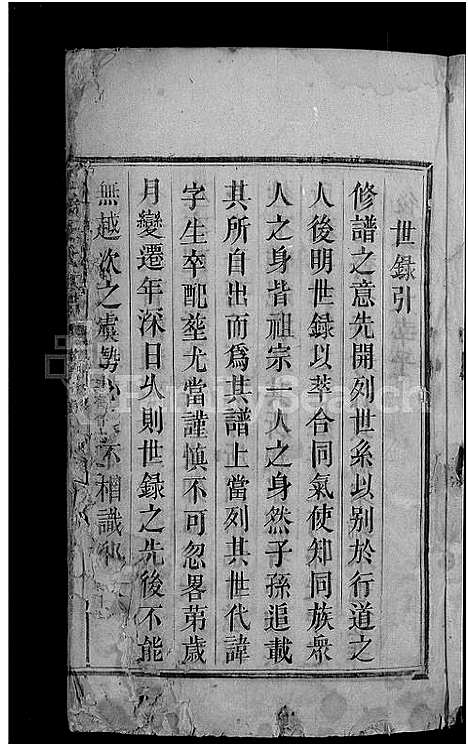 世録引
修譜之意先開列世系以別於行道之
人後明世録以萃合同氣使知同族衆
人之身皆祖宗一人之身然子孫追載
其所自出而爲其譜上當列其世代諱
字生卒配塟尤當謹慎不可忽畧第歲
月變遷年深日久則世録之先後不能
無越次之虞勢
不相識
FamilySearch